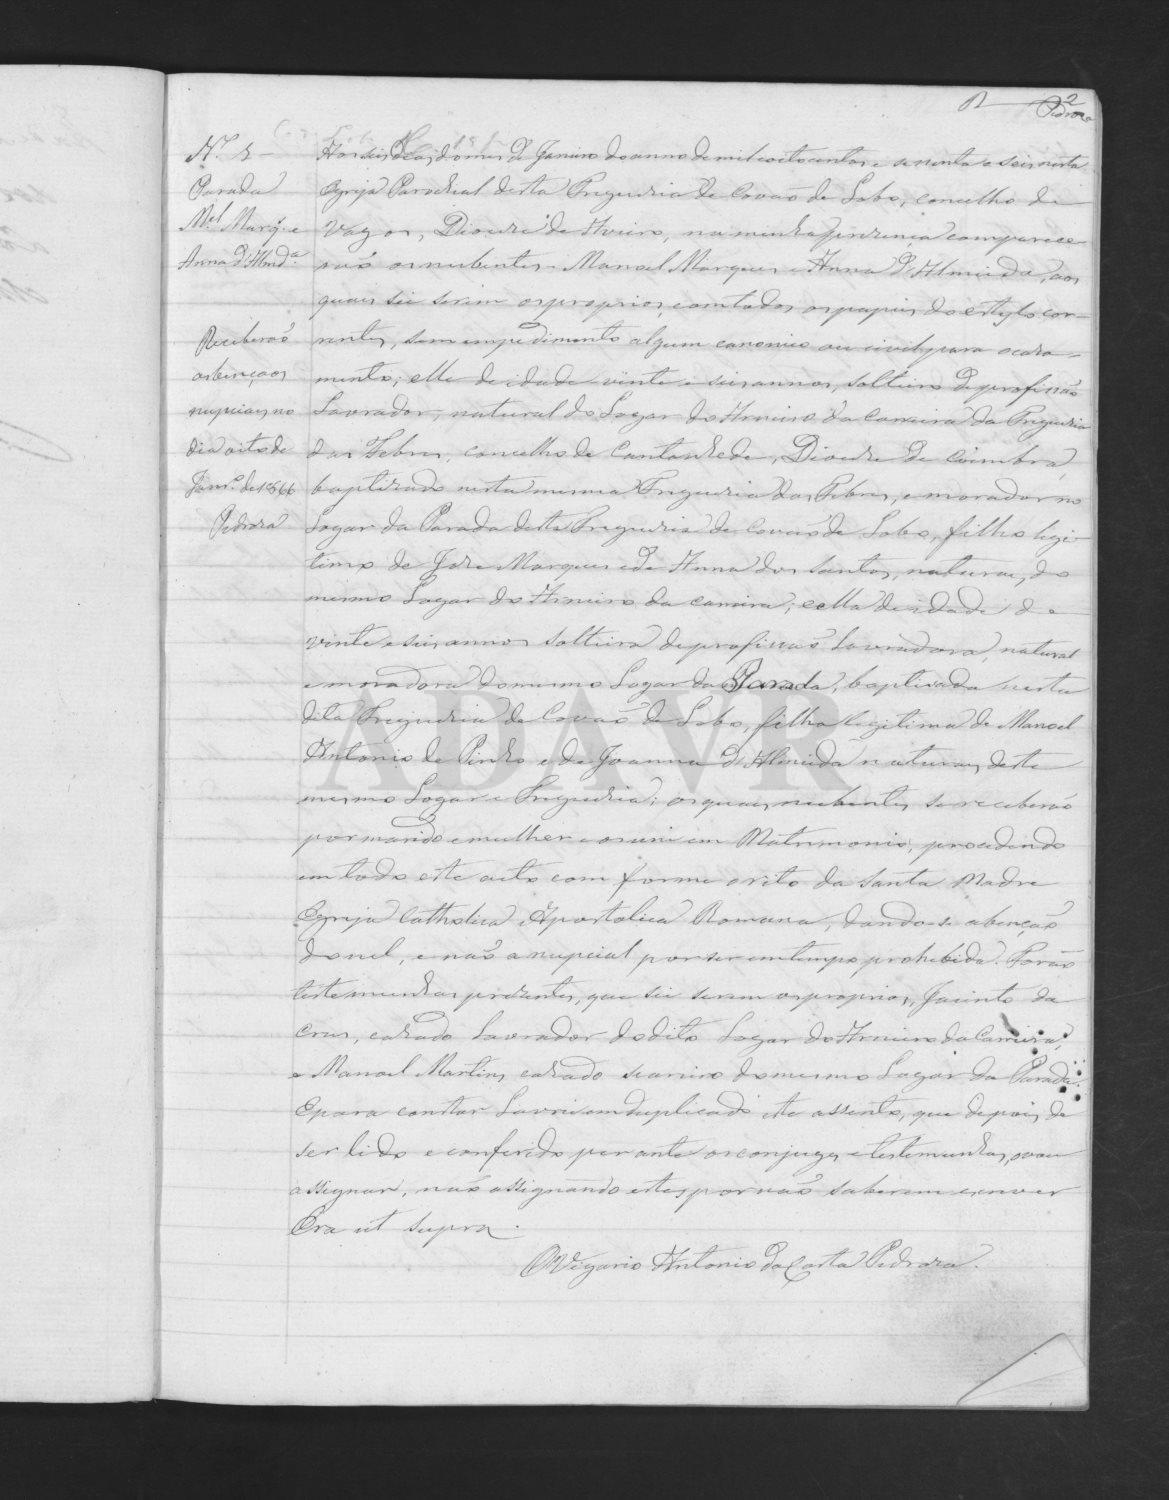 2
Pedroza
N.º 2
Parada
M.el Marq.s e
Anna d'Almd.ª
Receberaõ
as bençaos
nupciaes no
dia oito de
Janr.º de 1866
Pedroza
Aos seis dias do mes de Janeiro do anno de mil e oito centos e sessenta e seis nesta
Egreja Parochial desta Freguezia de Covaõ de Lobo, concelho de
Vagos, Diocese de Aveiro, na minha prezença comparece
raõ os nubentes Manoel Marques e Anna d'Almeida, aos
quaes sei serem os proprios, com todos os papeis do estylo cor-
rentes, sem impedimento algum canonico ou civil para o caza-
mento; elle de idade vinte e seis annos, solteiro de profissaõ
Lavrador, natural do Logar do Arneiro da Carreira da Freguezia
das Febres, concelho de Cantanhede, Diocese de Coimbra,
baptizado nesta mesma Freguezia das Febres, e morador no
Logar da Parada desta Freguezia de Covaõ de Lobo, filho legi-
timo de Joze Marques e de Anna dos Santos, naturaes do
mesmo Logar do Arneiro da Carreira; e ella de idade de
vinte e seis annos solteira de profissaõ Lavradora, natural
e moradora do mesmo Logar da Parada, baptizada nesta
dita Freguezia de Covaõ de Lobo, filha legitima de Manoel
Antonio de Pinho e de Joanna d'Almeida naturaes deste
mesmo Logar e Freguezia; os quaes nubentes se receberaõ
por marido e mulher e os uni em Matrimonio, procedendo
em todo este acto com forme o rito da Santa Madre
Egreja Catholica Apostolica Romana, dando-se a bençaõ
do nel, e naõ a nupcial por ser em tempo prohebido. Foraõ
testemunhas prezentes, que sei serem os proprios, Jacinto da
Crus, cazado Lavrador do dito Logar do Arneiro da Carreira,
e Manoel Martins cazado seareiro do mesmo Logar da Parada.
E para constar Lavrei em duplicado este assento, que depois de
ser lido e conferido perante os conjuges e testemunhas, o vou
assignar, naõ assignando estes por naõ saberem escrever
Era ut supra.
O Vigario Antonio da Costa Pedroza.
ADAVR